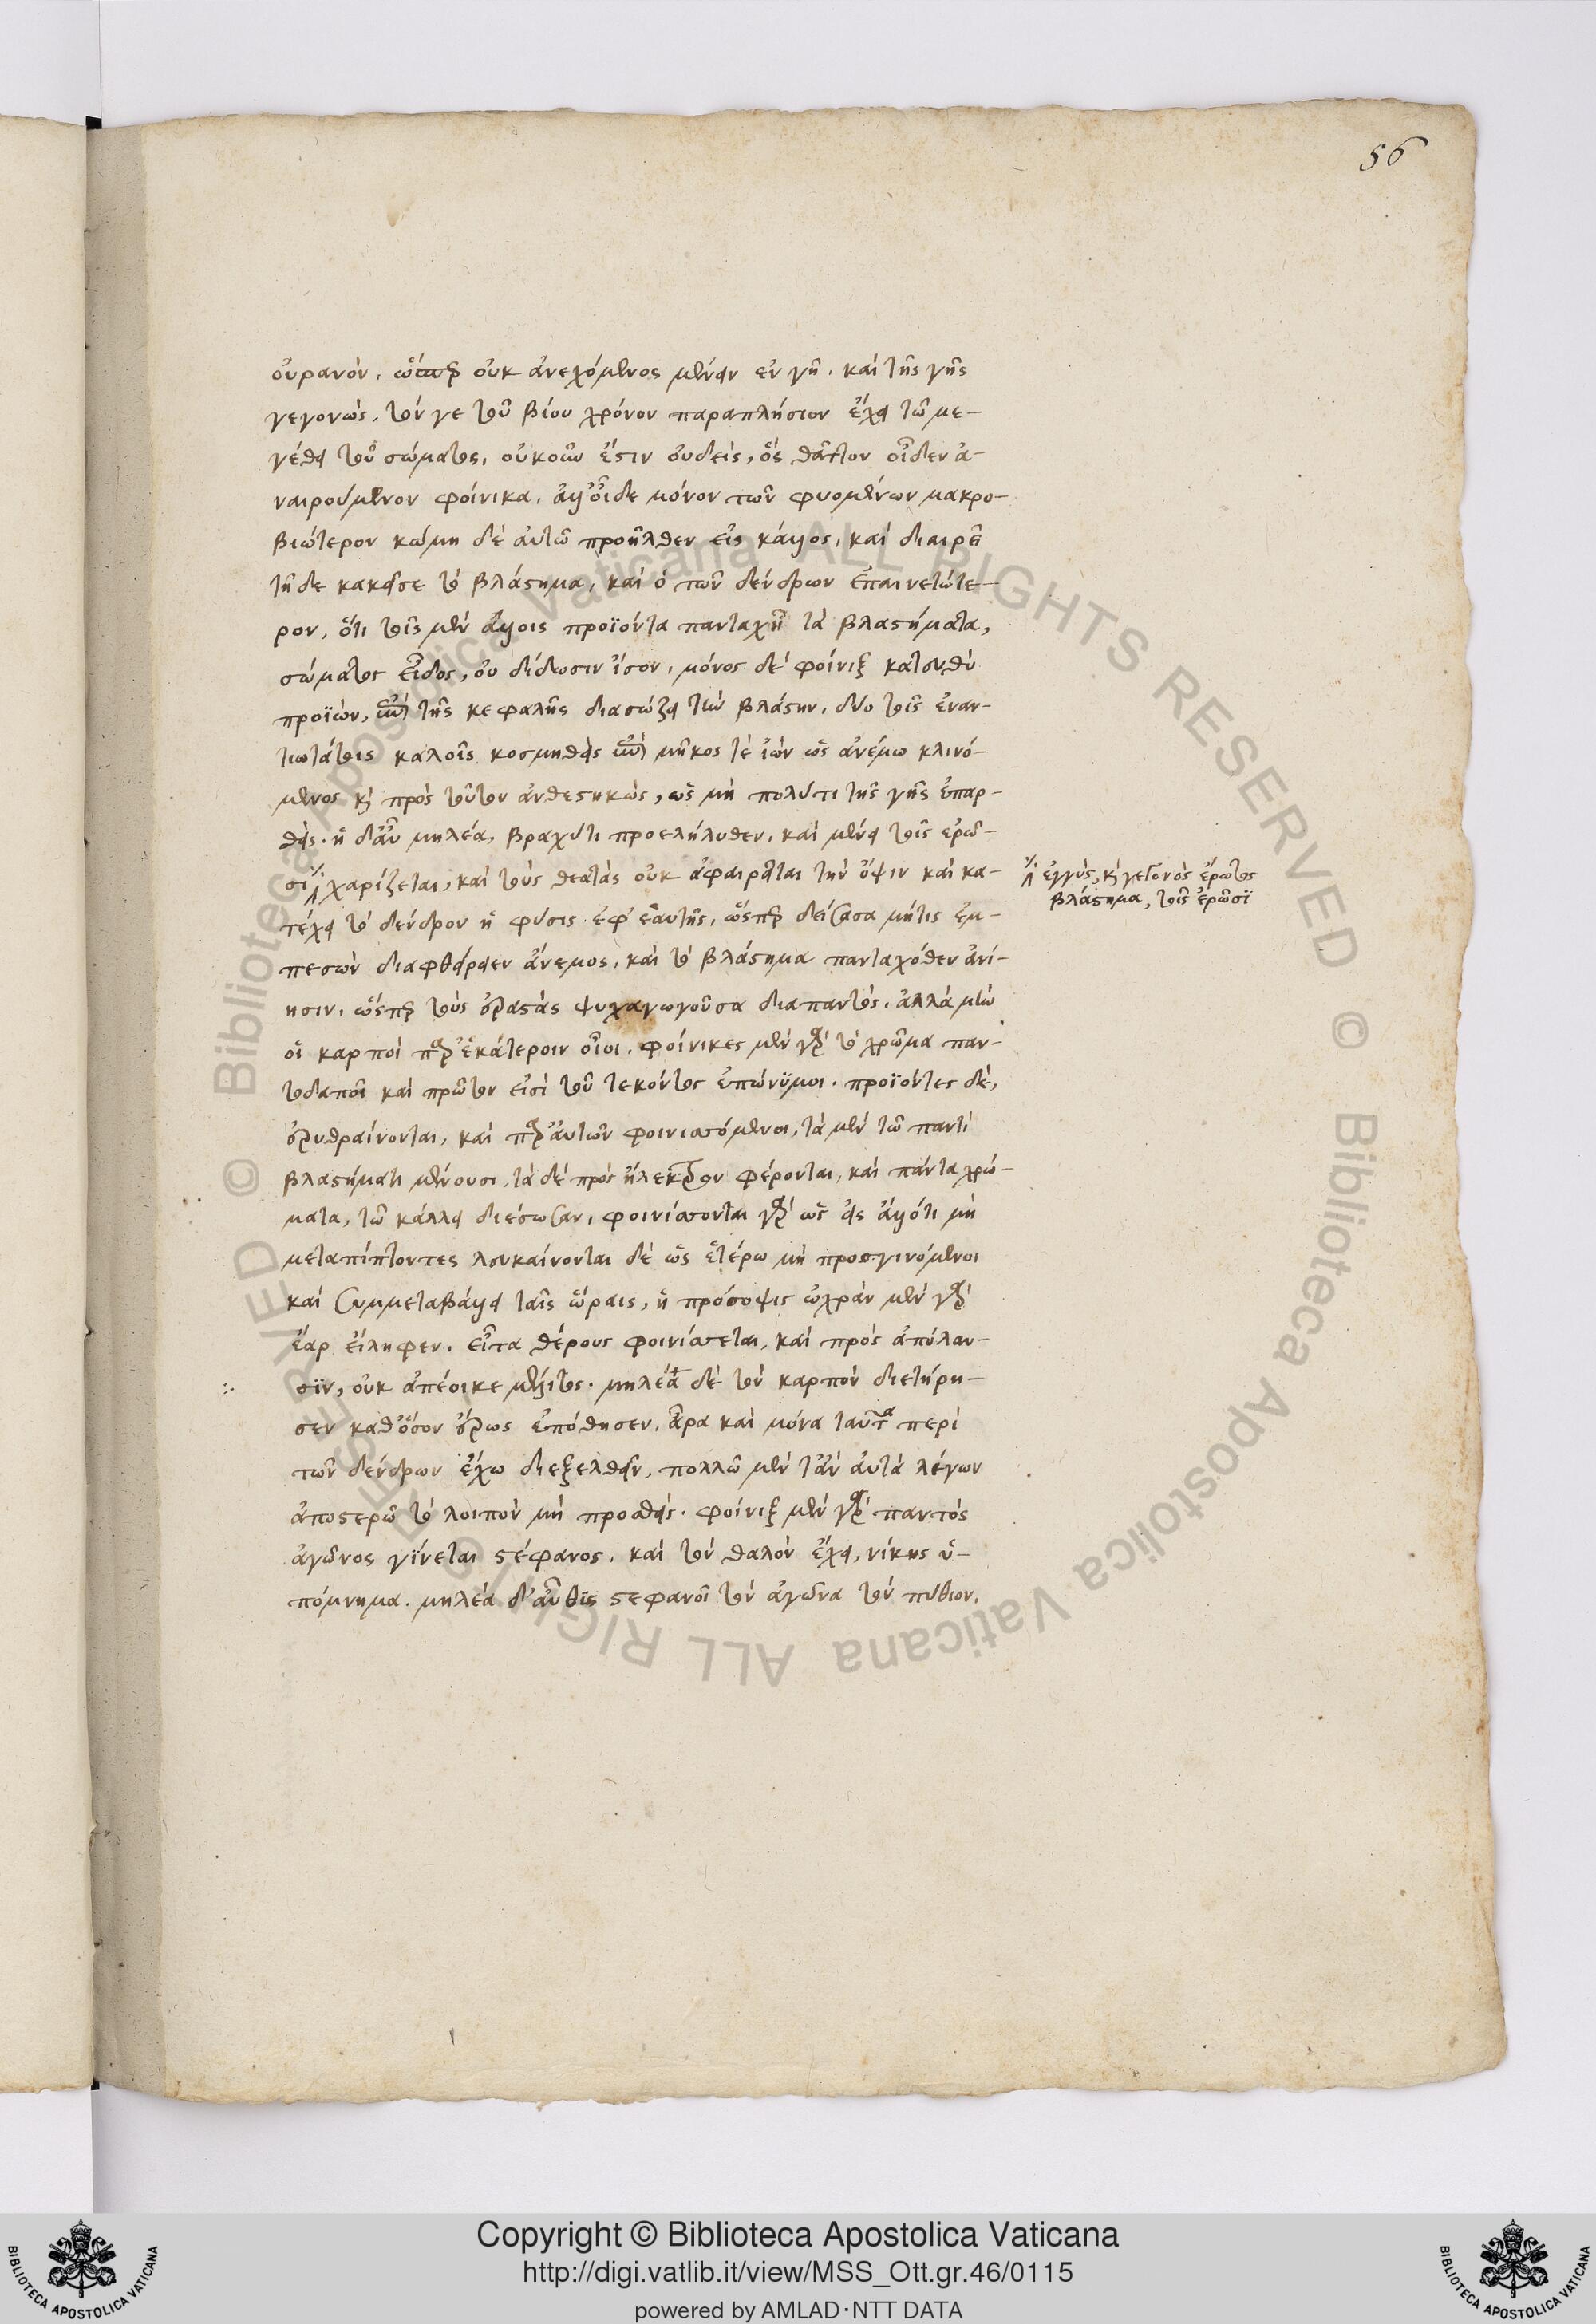 56
οὐρανὸν. ὥσπερ οὐκ ἀνεχόμενος μένειν ἐν γῇ. καὶ τῆς γῆς
γεγονὼς, τόν γε τοῦ βίου χρόνον παραπλήσιον ἔχει τῶ με-
γέθει τοῦ σώματος, οὐκοῦν ἔστιν οὐδεὶς, ὃς θᾶττον οἶδεν ἀ-
ναιρούμενον φοίνικα. ἀλλ' οἶδε μόνον τῶν φυομένων μακρο-
βιώτερον κώμη δὲ αὐτῶ προῆλθεν εἰς κάλλος, καὶ διαιρεῖ
τῇδε κακεῖσε τὸ βλάστημα, καὶ ὁ τῶν δένδρων ἐπαινετώτε-
ρον, ὅτι τοῖς μὲν ἄλλοις προϊόντα πανταχῆ τὰ βλαστήματα,
σώματος εἶδος, οὐ δίδωσιν ἴσον, μόνος δὲ φοίνιξ κατευθὺ
προϊὼν, τῆς κεφαλῆς διασώζει τὴν βλάστην, δύο τοῖς ἐναν-
τιωτάτοις καλοῖς κοσμηθεὶς μῆκος τὲ ἰὼν ὡς ἀνέμω κλινό-
μενος καὶ πρὸς τοῦτον ἀνθεστηκὼς, ὡς μὴ πολύ τι τῆς γῆς ἐπαρ-
θεὶς. ἡ δ' αὖ μηλέα, βραχύτι προελήλυθεν, καὶ μένει τοῖς ἐρῶ-
σι χαρίζεται, καὶ τοὺς θεατὰς οὐκ ἀφαιρεῖται τὴν ὄψιν καὶ κα-
τέχει τὸ δένδρον ἡ φύσις ἐφ' ἑαυτῆς, ὥσπερ δείσασα μήτις ἐμ-
πεσὼν διαφθείρειεν ἄνεμος, καὶ τὸ βλάστημα πανταχόθεν ἀνί-
ησιν, ὥσπερ τοὺς ἐραστὰς ψυχαγωγοῦσα διαπαντός. ἀλλὰ μὴν
οἱ καρποὶ παρ' ἑκάτεροιν οἷοι. φοίνικες μὲν γὰρ τὸ χρῶμα παν-
τοδαποῖ καὶ πρῶτον εἰσὶ τοῦ τεκόντος ἐπώνυμοι. προϊόντες δὲ,
ἐρυθραίνονται, καὶ παρ' αὐτῶν φοινισσόμενοι, τὰ μὲν τῶ παντὶ
βλαστήματι μένουσι, τὰ δὲ πρὸς ἤλεκτρον φέρονται, καὶ πάντα χρώ-
ματα, τῶ κάλλει διέσωσαν, φοινίσσονται γὰρ ὡς εἰς ἄλλό τι μὴ
μεταπίπτοντες λευκαίνονται δὲ ὡς ἑτέρω μὴ προσγινόμενοι
καὶ συμμεταβάλλει ταῖς ὥραις, ἡ πρόσοψις ὠχρὰν μὲν γὰρ
ἔαρ εἴληφεν. εἶτα θέρους φοινίσσεται, καὶ πρὸς ἀπόλαυ-
σϊν, οὐκ ἀπέοικε μέλιτος. μηλέα δὲ τὸν καρπὸν διετήρη-
σεν καθ' ὅσον ἔρως ἐπόθησεν. ἆρα καὶ μόνα ταῦτα περὶ
τῶν δένδρων ἔχω διεξελθεῖν, πολλῶ μὲν τἂν αὐτὰ λέγων
ἀποστερῶ τὸ λοιπὸν μὴ προσθείς. φοίνιξ μὲν γὰρ παντὸς
ἀγῶνος γίνεται στέφανος, καὶ τὸν θαλὸν ἔχει, νίκης ὑ-
πόμνημα. μηλέα δ' αὖθϊς στεφανοῖ τὸν ἀγῶνα τὸν πύθιον.
ἐγγὺς, καὶ γεγονὸς ἔρωτος
βλάστημα, τοῖς ἐρῶσϊ
Copyright © Biblioteca Apostolica Vaticana
http://digi.vatlib.it/view/MSS_Ott.gr.46/0115
powered by AMLAD·NTT DATA
BIBLIOTECA APOSTOLICA VATICANA
BIBLIOTECA APOSTOLICA VATICANA
© Biblioteca Apostolica Vaticana ALL RIGHTS RESERVED © Biblioteca Apostolica Vaticana ALL RIGHTS RESERVED